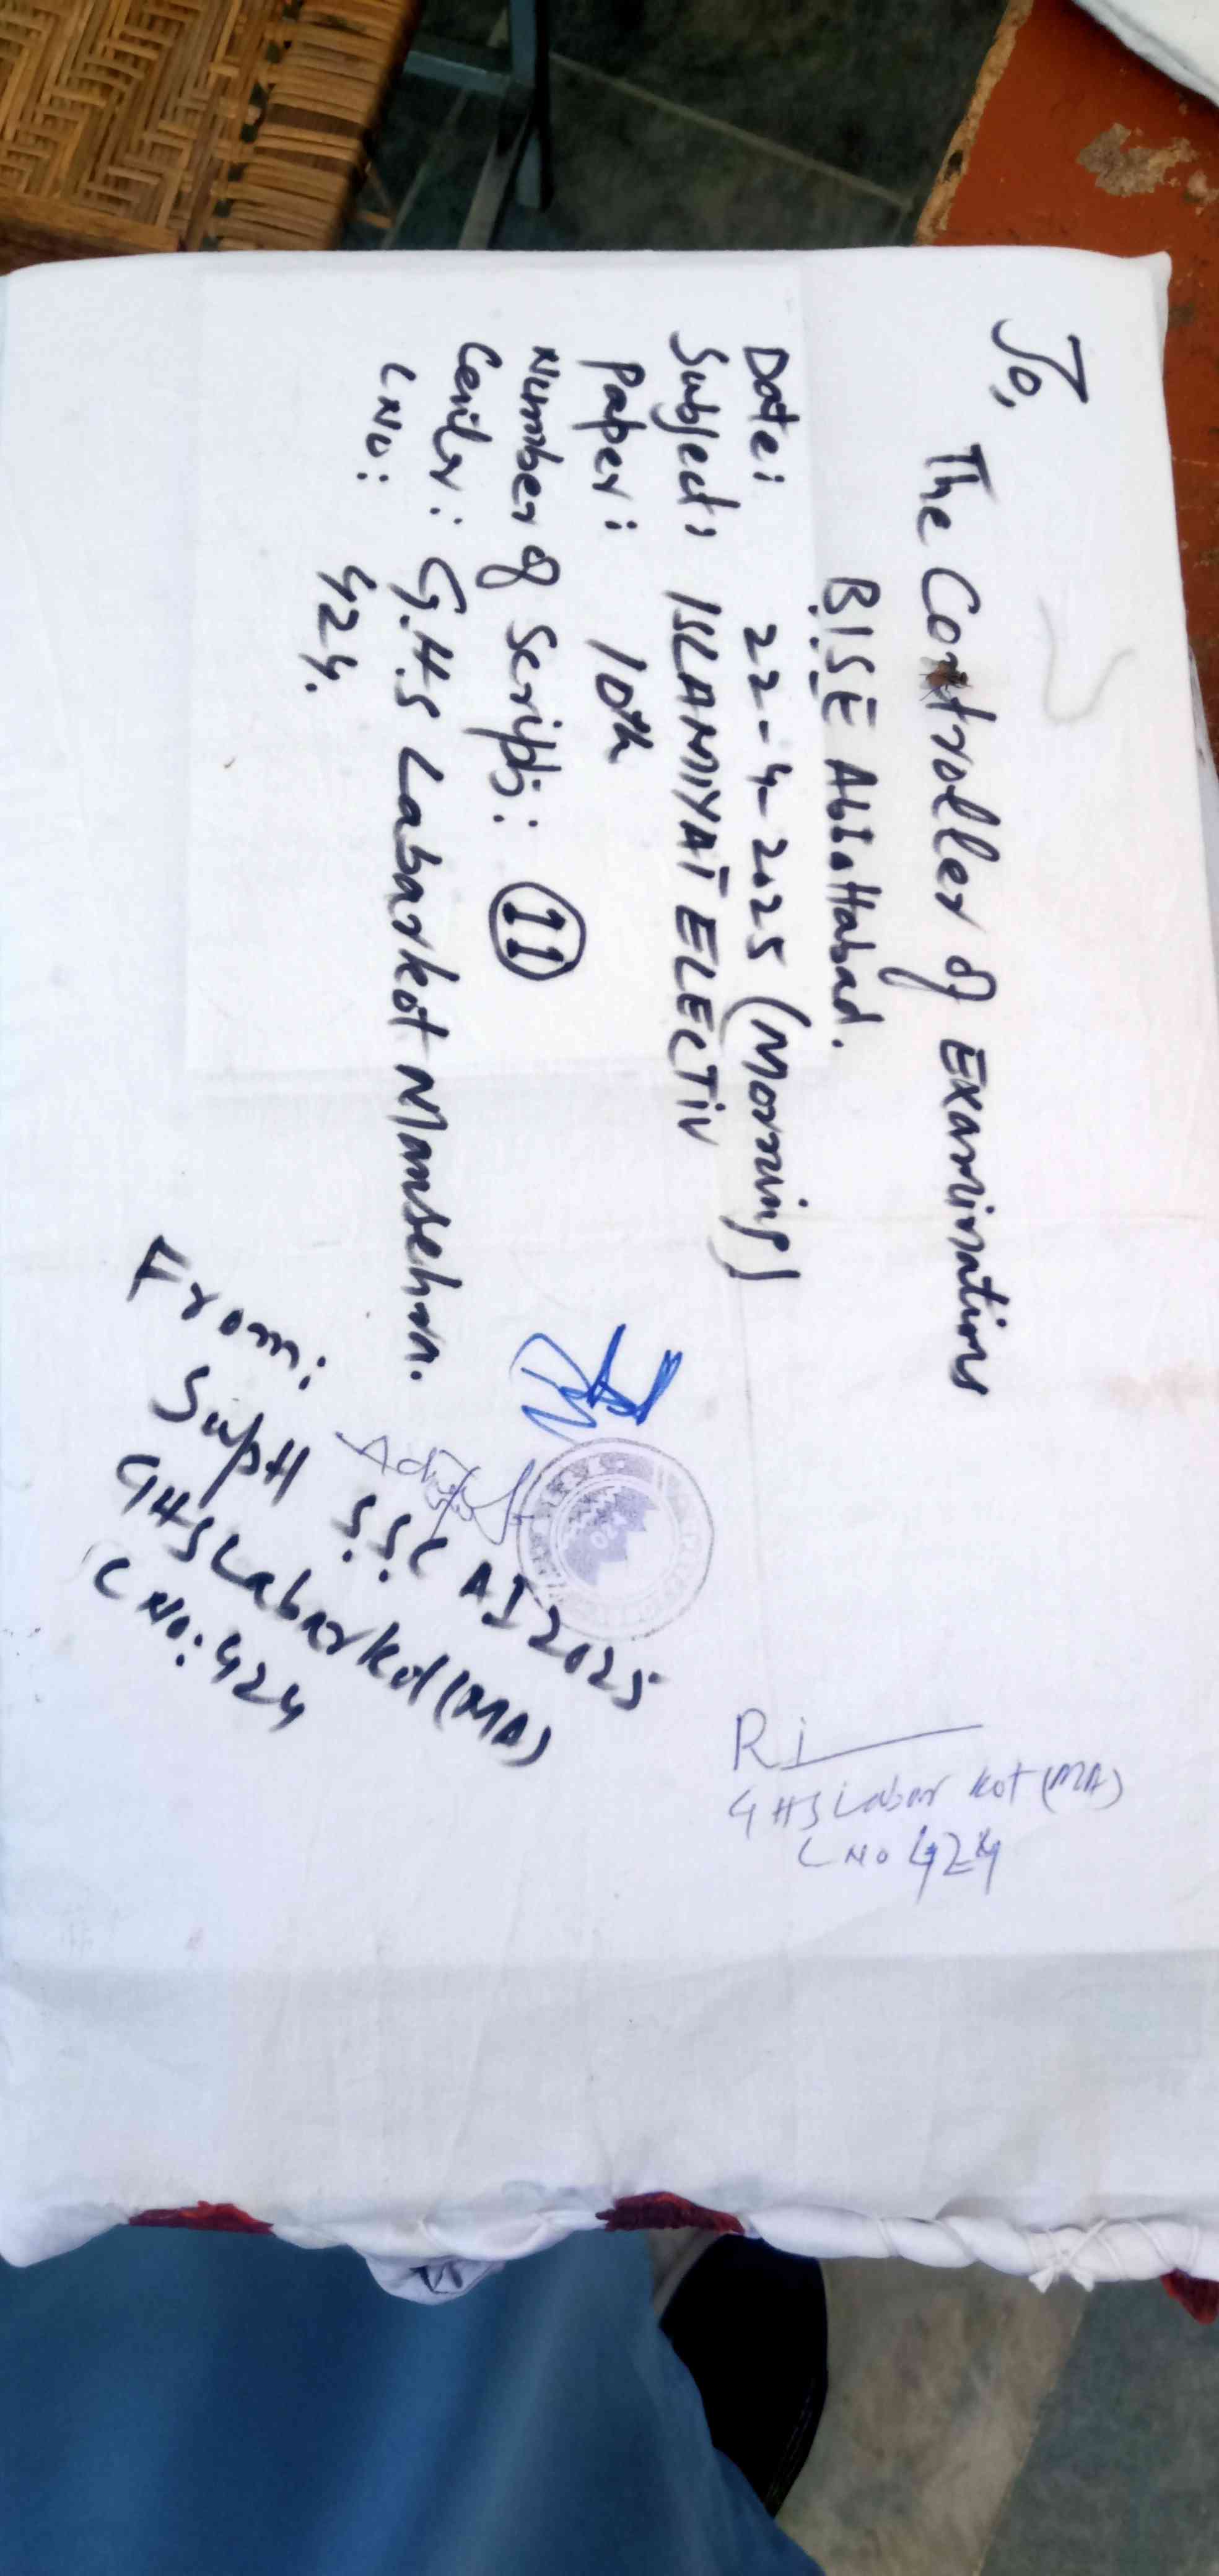 To,
The Controller of Examinations
B.I.S.E Abbottabad.
Date: 22-4-2025 (Morning)
Subject: ISLAMIYAT ELECTIV
Paper: 10th
Number of Scripts: 11
G.H.S Labarkot Mansehra.
CNO: 424.
From:
Supdt S.S.C AI 2025
GHS Labarkot (MA)
C NO: 424
RI
GHS Labar Kot (MA)
C NO 424